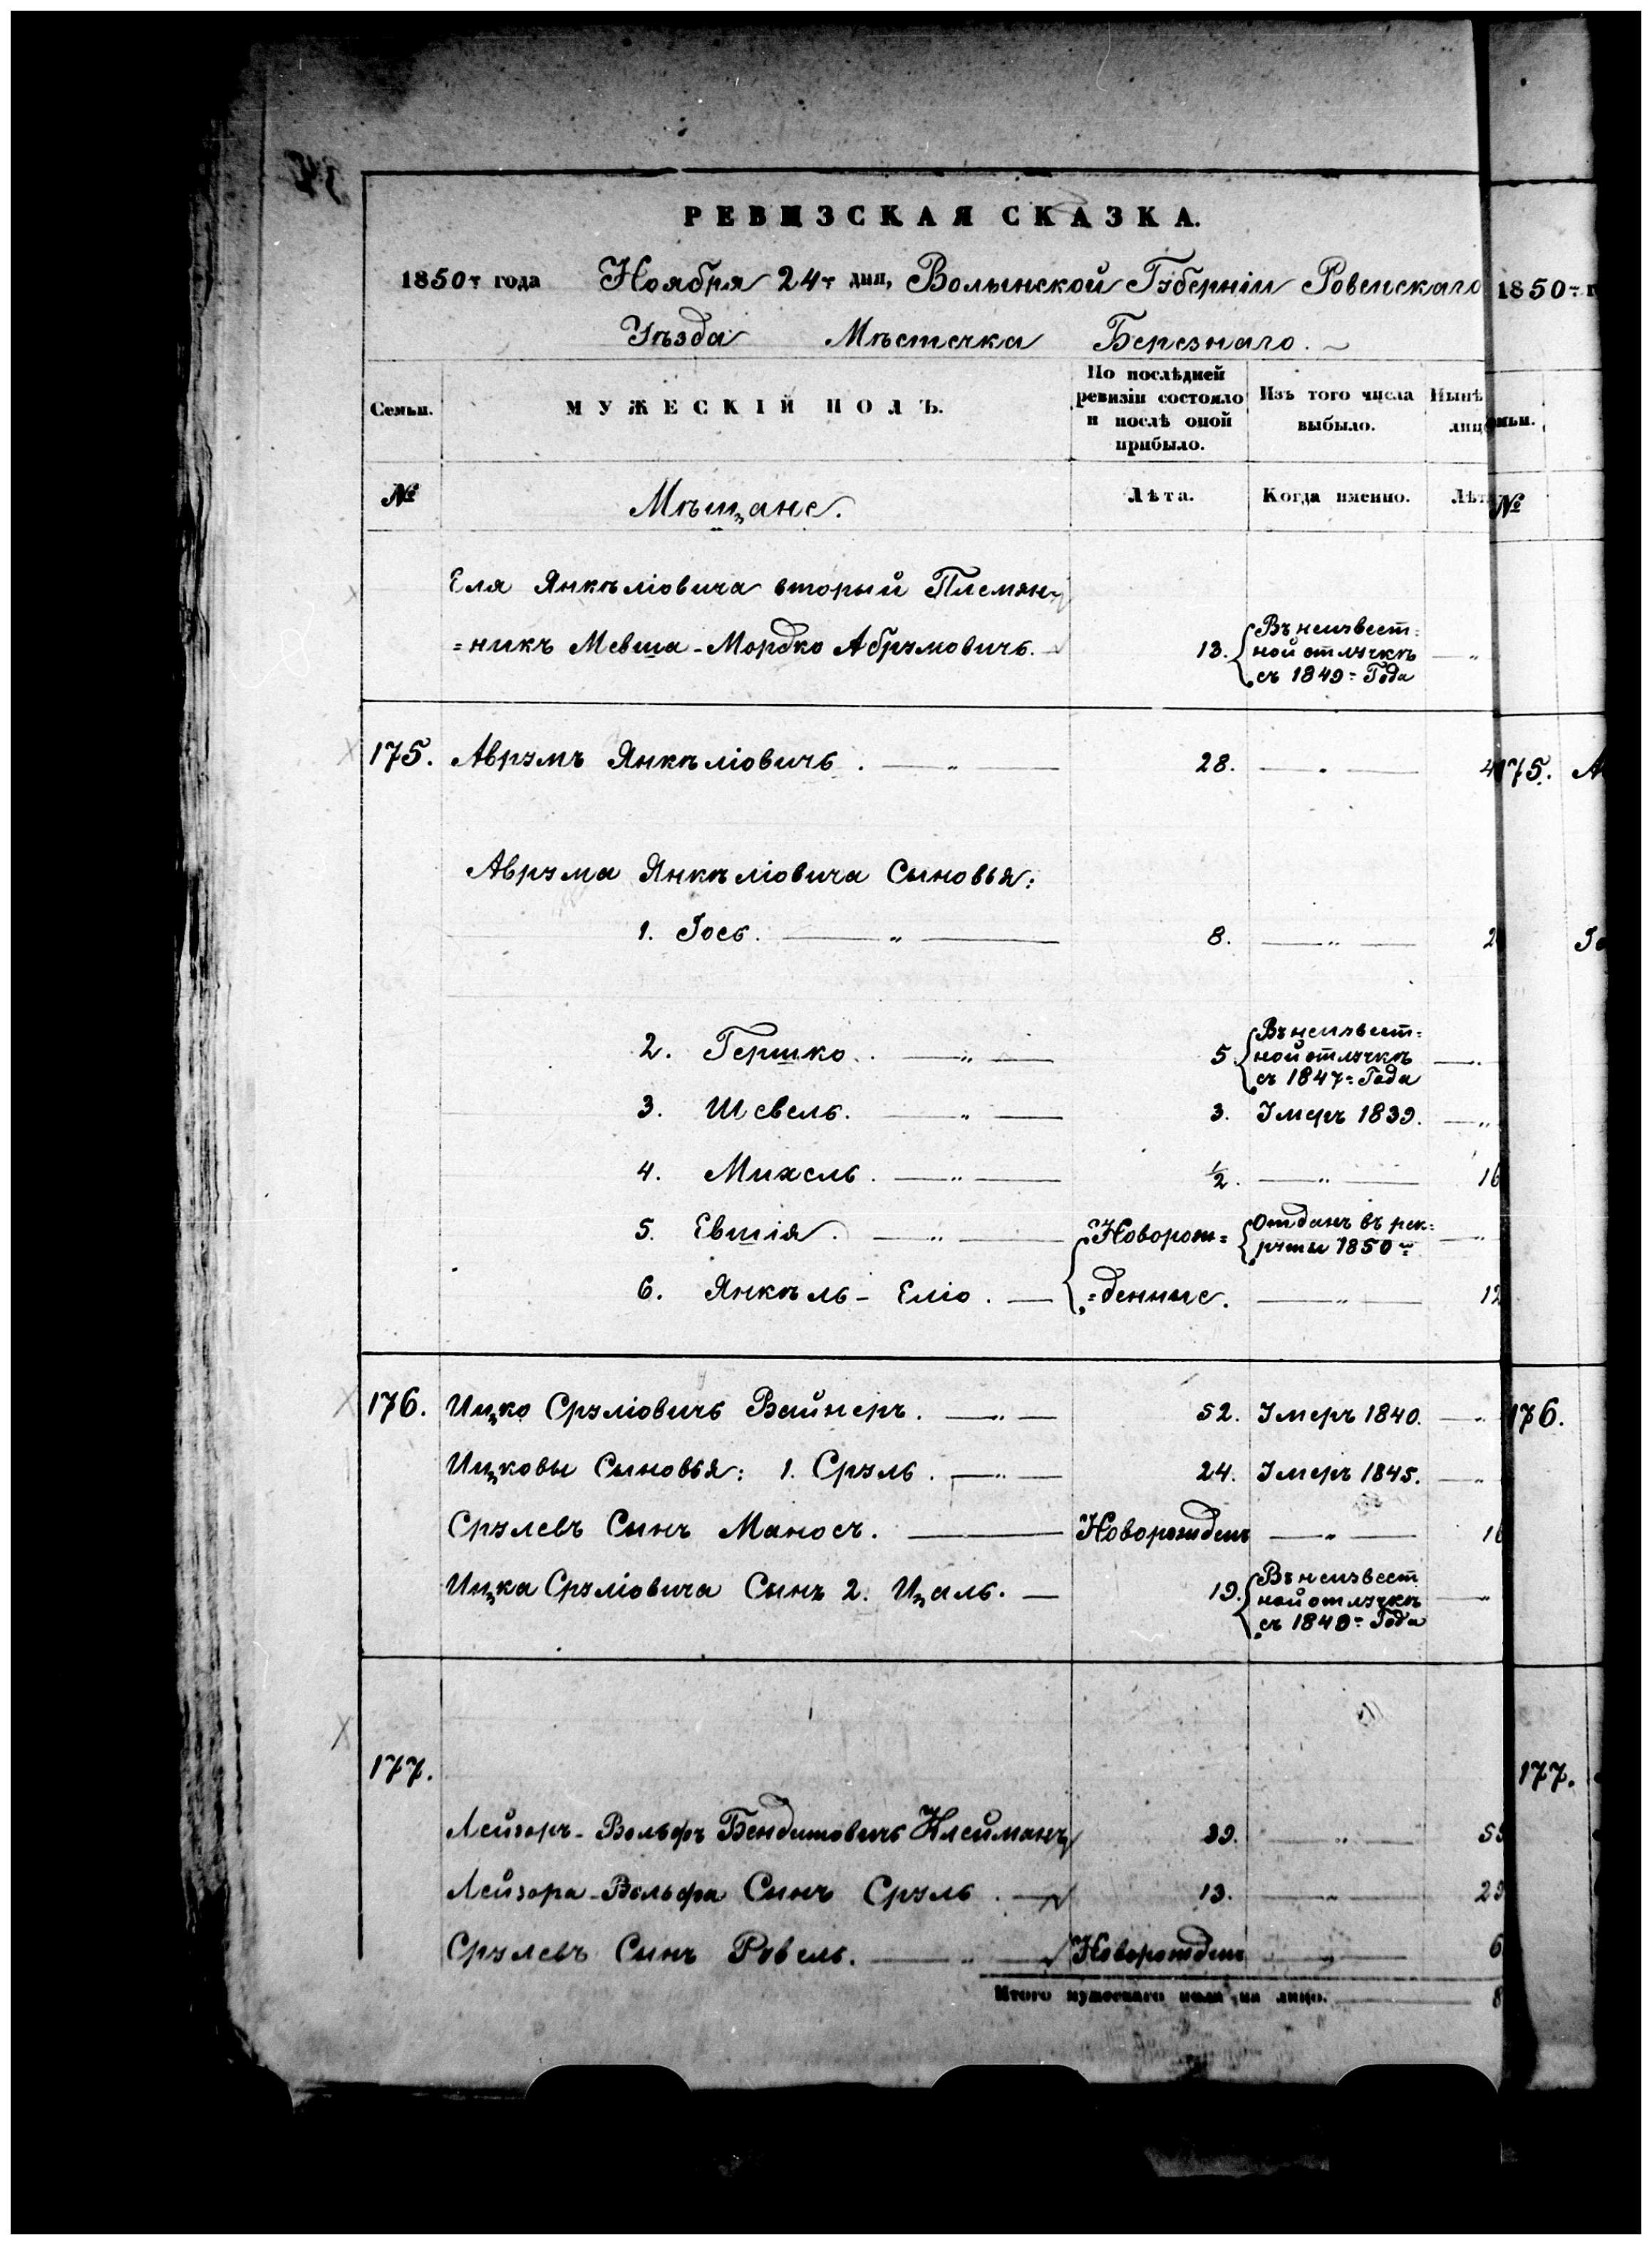 РЕВИЗСКАЯ СКАЗКА.
1850го года Ноября 24го дня, Волынской Губерніи Ровенскаго
Уѣзда Мѣстечка Березнаго.
Семьи. МУЖЕСКІЙ ПОЛЪ. По послѣдней ревизіи состояло и послѣ оной прибыло. Изъ того числа выбыло. Нынѣ лиц
№ Мѣщане. Лѣта. Когда именно. Лѣт
Еля Янкѣліовича вторый Племян-
=никъ Мевша-Мордко Абрумовичъ. 13. Въ неизвест=
ной отлучкѣ
съ 1849 Года
175. Аврумъ Янкѣліовичъ. 28. 4
Аврума Янкѣліовича Сыновья:
1. Іось. 8. 2
2. Гершко. 5. Въ неизвест=
ной отлучкѣ
съ 1847 Года
3. Шевель. 3. Умеръ 1839.
4. Михель. 1/2. 16
5. Евшія. Новорож= Отданъ въ рек=
руты 1850
6. Янкѣль-Еліо. =денные. 12
176. Ицко Sруліовичъ Вайнеръ. 52. Умеръ 1840.
Ицковы Сыновья: 1. Сруль. 24. Умеръ 1845.
Срулевъ Сынъ Маносъ. Новорожден 16
Ицка Сруліовича Сынъ 2. Ицаль. 19. Въ неизвест
ной отлучкѣ
съ 1849 Года
177.
Лейзоръ-Вольфъ Бендитовичъ Клейманъ 39. 55
Лейзора-Вольфа Сынъ Сруль. 13. 29
Срулевъ Сынъ Ровель. Новорожден 6
Итого мужескаго пола на лицо. 8
1850 г
мьи.
№
175. А
Іо
176.
177.